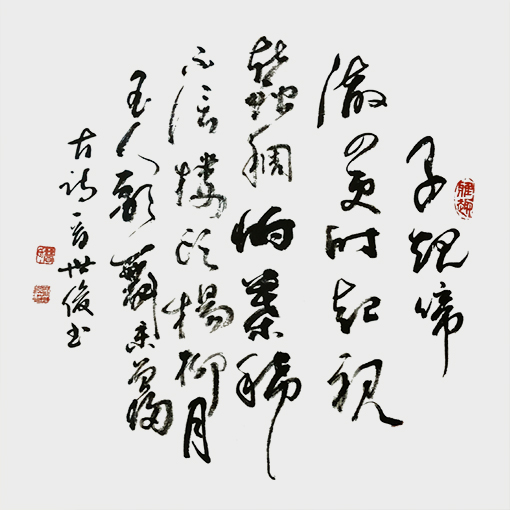 子規啼
澈四更时起視
蠶稠怕葉稀
不信楼头楊柳月
玉人歌舞未曾歸
古诗一首世俊书